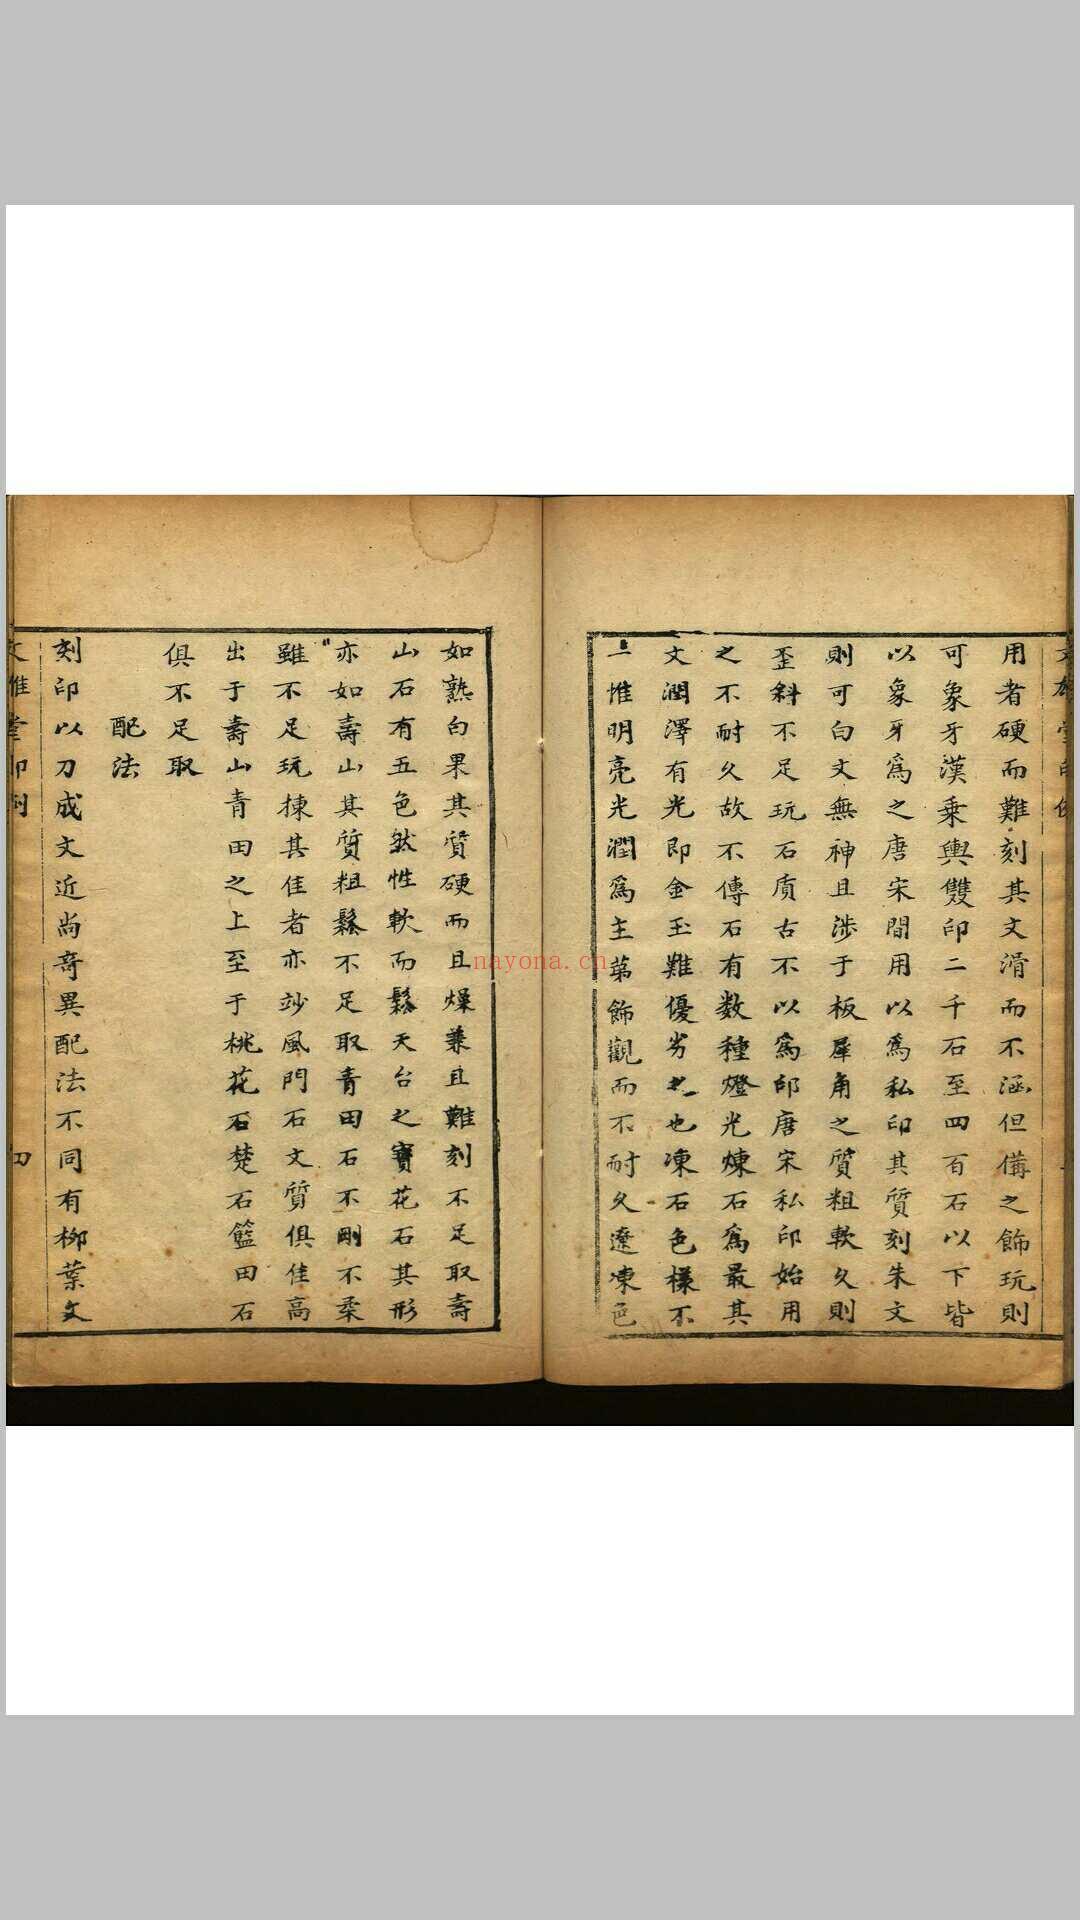 用者硬而難刻其文滑而不涵但備之飾玩則
可象牙漢乗輿雙印二千石至四百石以下皆
以象牙為之唐宋間用以為私印其質刻朱文
則可白文無神且涉于板犀角之質粗軟久則
歪斜不足玩石質古不以為印唐宋私印始用
之不耐久故不傳石有数種燈光煉石為最其
文潤澤有光即金玉難優劣之也凍石色樣不
一惟明亮光潤為主第飾觀而不耐久遼凍色
如熟白果其質硬而且燥兼且難刻不足取壽
山石有五色然性軟而鬆天台之寶花石其形
亦如壽山其質粗鬆不足取青田石不剛不柔
雖不足玩揀其佳者亦妙風門石文質俱佳高
出于壽山青田之上至于桃花石楚石籃田石
俱不足取
配法
刻印以刀成文近尚竒異配法不同有柳葉文
文雄堂印例
四
nayona.cn